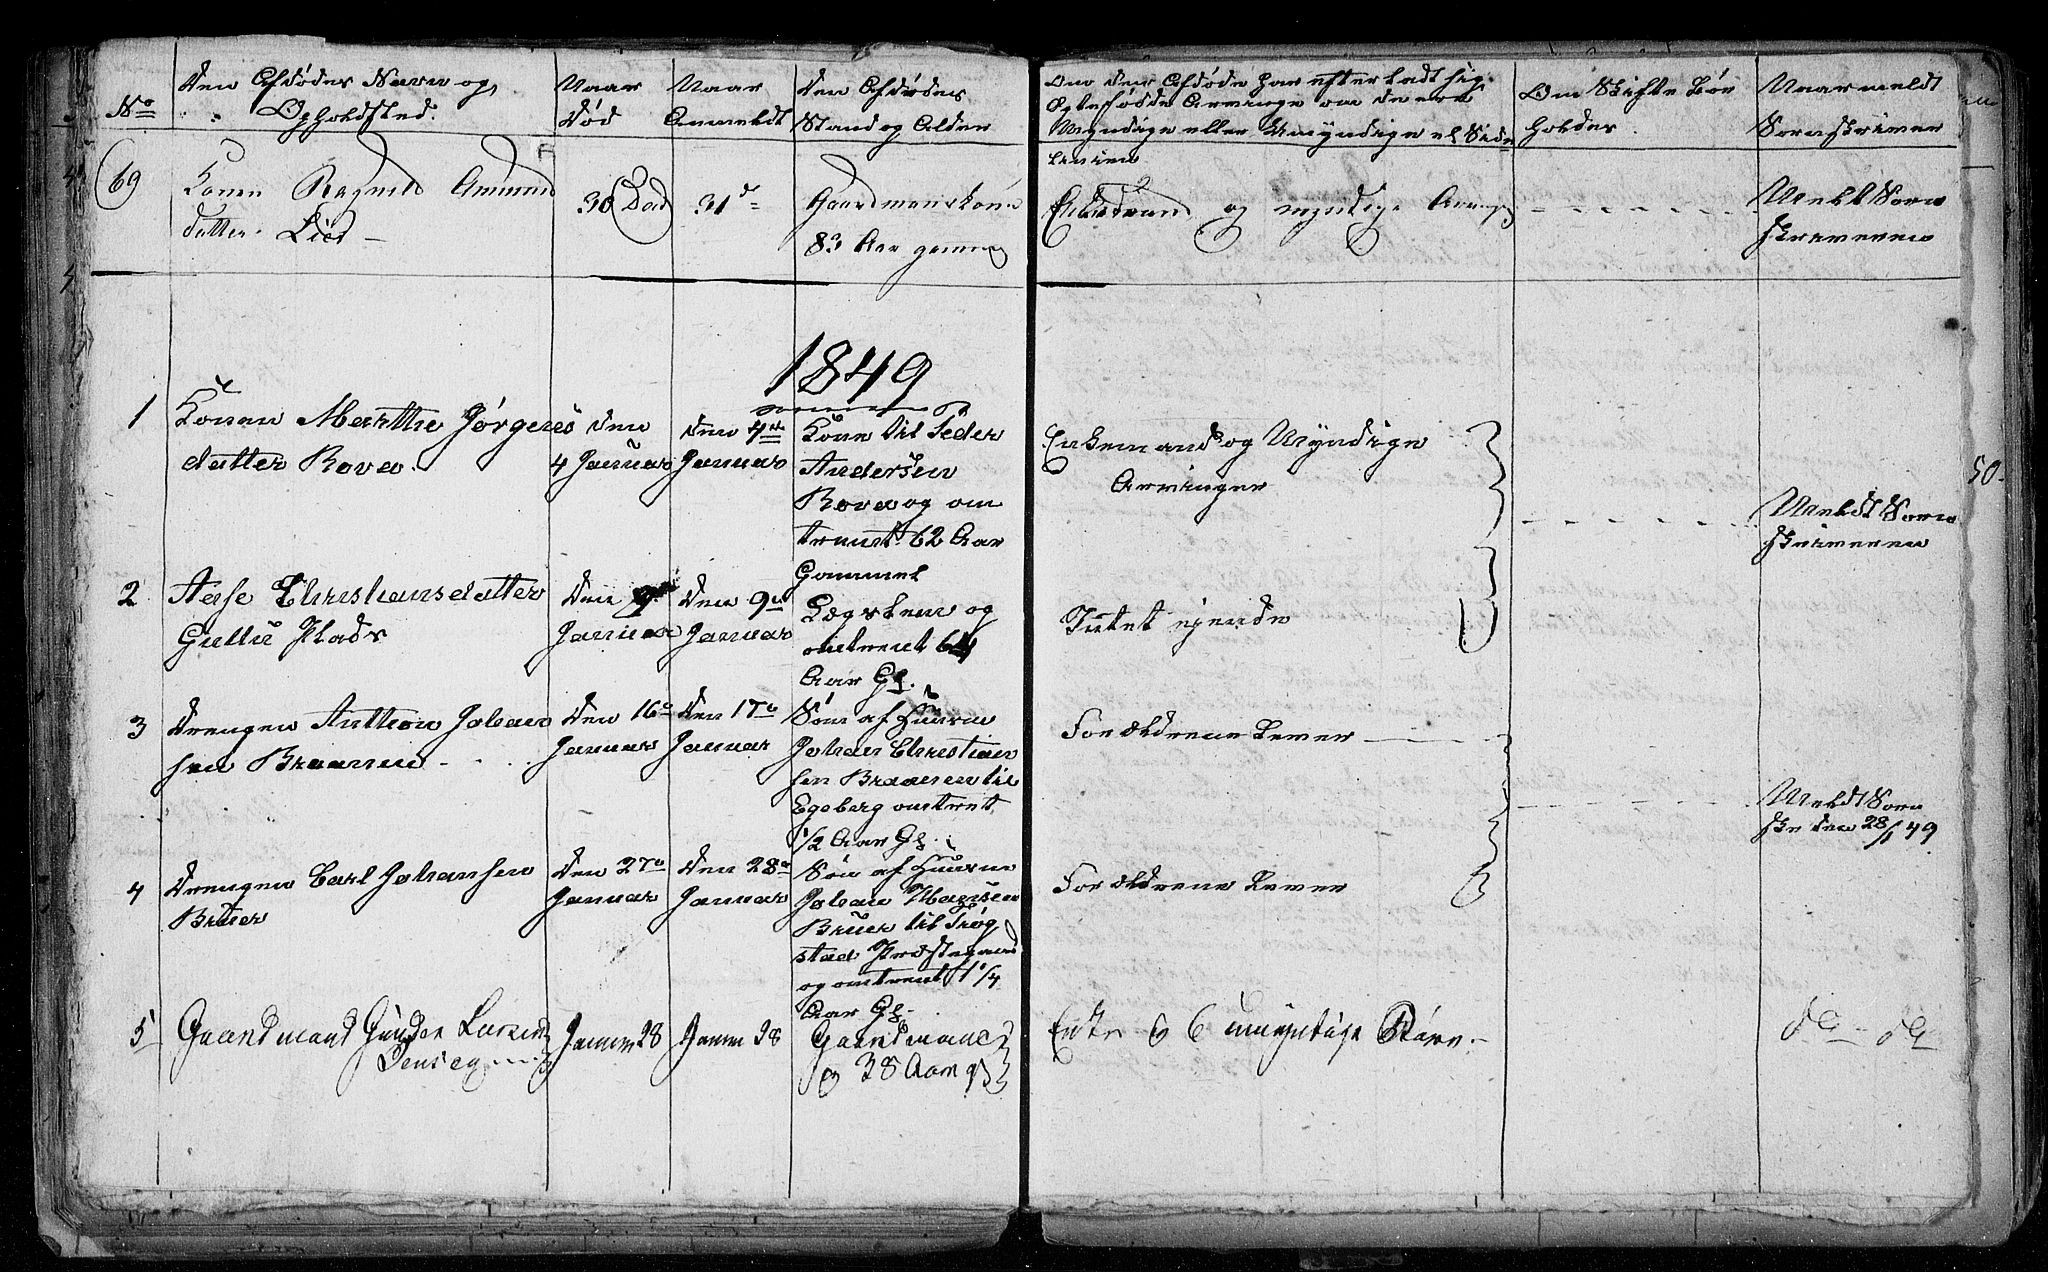 No
Den Afdødes Navn og
Opholdsted.
Naar
Død
Naar
Anmeldt
Den Afdødes
Stand og Alder
Om den Afdøde har efterladt sig
Ægtefødde Arvinge om de ere
Myndige eller Umyndige el Side
Linien
Om Skifte bør
holdes.
Naar meldt
Sorenskriver
69
Konen Ragnild Amund
datter Lier
30 Decb
31 d
Gaardmandskone
83 Aar gammel
Enkemand og myndige Arving
Meldt Soren
skriveren
1849
1
Konen Marthe Jørgens
datter Rovn.
den
4 Januar
den 4de
Januar
Kone til Peder
Andersen
Rovn og om
trent 62 Aar
Gammel
Enkemand og Myndige
Arvinger
Meldt Soren
skriveren
2
Aase Christiansdatter
Gullu Plads
Den 9de
Januar
Den 9de
Januar
Lægslem og
omtrent 64
Aar Gl.
Intet ejende
3
Drengen Anthon Johan
sen Braanen
Den 16de
Januar
Den 17de
Januar
Søn af Huusm
Johan Christian
sen Braanen til
Egeberg omtrent
1/2 Aar Gl.
Forældrene Lever
Meldt Soren
skr den 28/1 49
4
Drengen Carl Johansen
Bruer
Den 27de
Januar
Den 28de
Januar
Søn af Huusm
Johan Magnsen
Bruer til Trøg
stad Præstegaard
og omtrent 1 1/4
Aar Gl.
Forældrene Lever
5
Gaardmand Gunder Larsen
Januar 28
Januar 28
Gaardmand
og 38 Aar gl
Enke og 6 umyndige Børn.
do do
50.